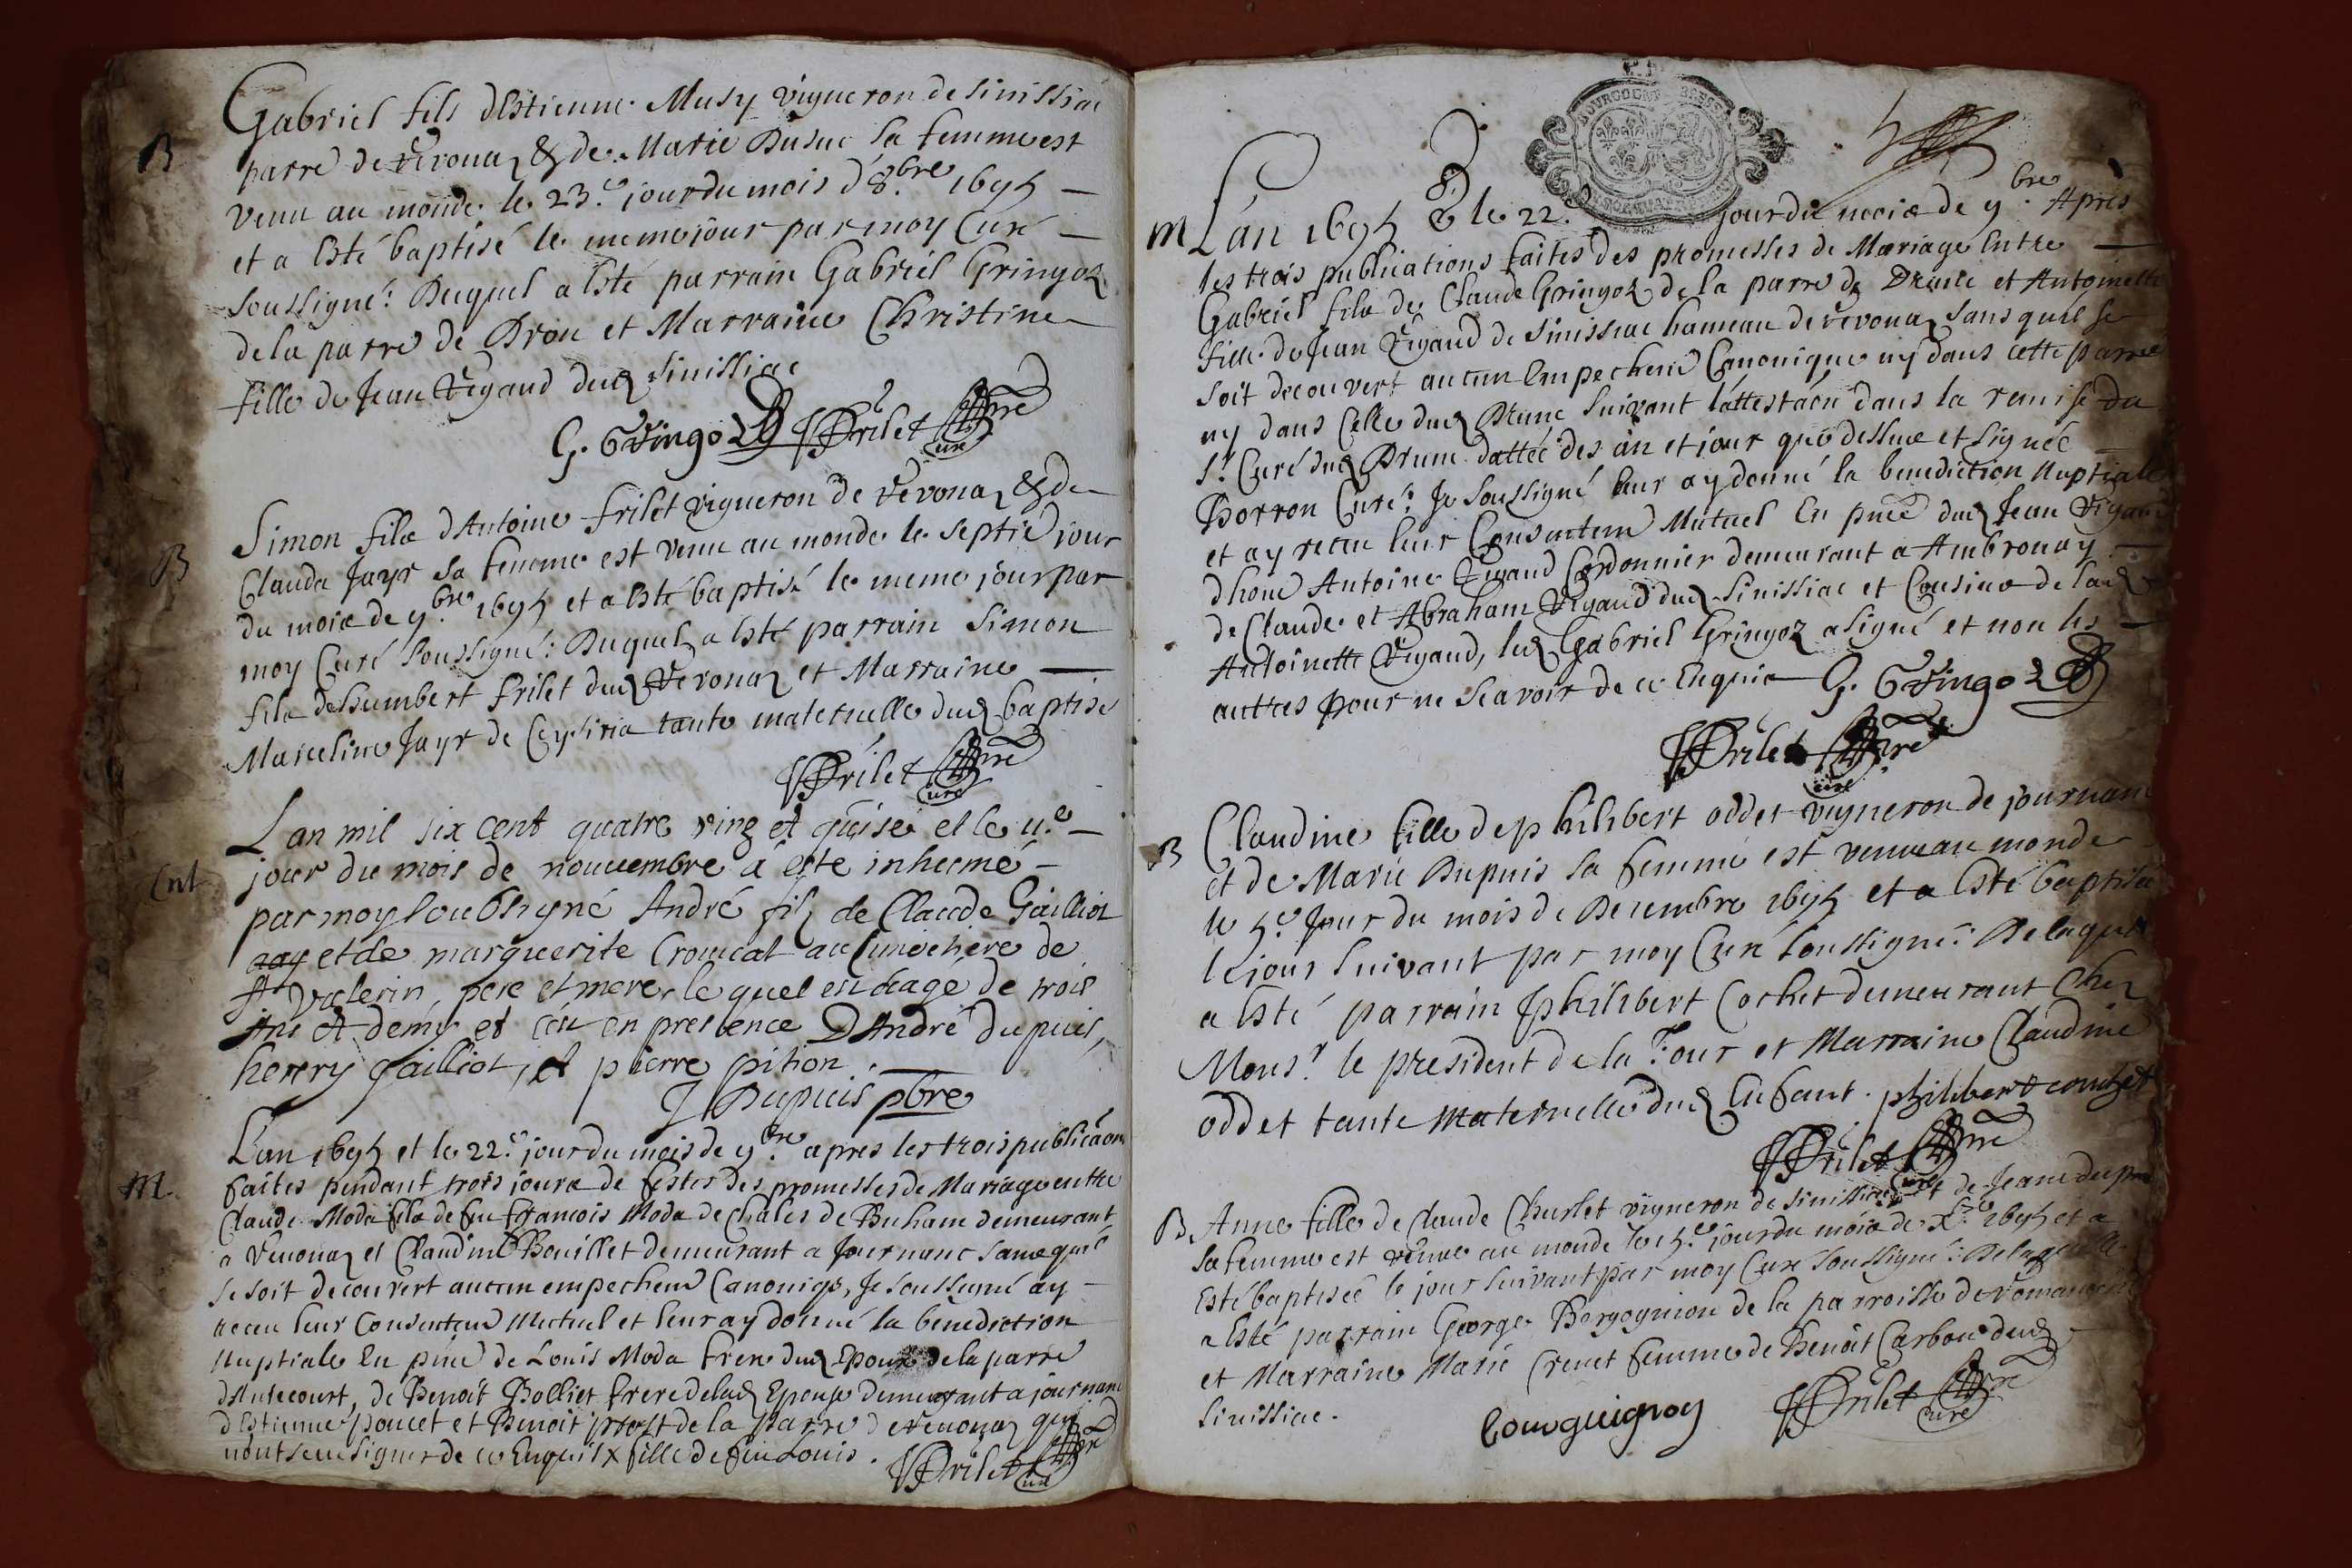 B
Gabriel fils dEstienne Musy vigneron de Sinissiac
parre de Vevonaz & de Marie Dusuc sa femme est
venu au monde le 23.e jour du mois d'8.bre 1695 —
et a esté baptisé le meme jour par moy Curé —
soussigné: Duquel a esté parrain Gabriel Gringoz
de la parre de Dron et Marraine Christine
fille de Jean Vigaud dud Sinissiac
G. Gringoz Frilet pbre
Curé
B
Simon fils dAntoine Frilet vigneron de Vevonaz & de
Clauda Jayr sa femme est venu au monde le septie jour
du mois de 9.bre 1695 et a esté baptisé le meme jour par
moy Curé soussigné: Duquel a esté parrain Simon
fils dehumbert Frilet dud Vevonaz et Marraine —
Marceline Jayr de Ceysiria tante maternelle dud baptisé
Frilet pbre
Curé
Ent
Lan mil six cent quatre ving et quise et le 11.e —
jour du mois de nouvembre a este inhumé —
par moy soubsigné André filz de Claude Gailliot
et de marguerite Croucat au Cimechiere de
St Valerin, pere et mere, le quel est aage de trois
Ans et demy et cest en presence DAndré dupuis,
henry gailliot, et pierre pihon.
J Dupuis pbre
M
L'an 1695 et le 22.e jour du mois de 9.bre apres les trois publicaons
faites pendant trois jours de festes des promesses de Mariage entre
Claude Moda fils de feu François Moda de Chales de Buhane demeurant
a Vevonaz et Claudine Bouillet demeurant a Journanc sans qu'il
se soit decouvert aucun empechem Canoniqe, Je soussigné ay —
receu leur Consentem Mutuel et leur ay donné la benediction
Nuptiale En pnce de Louis Moda frere dud Epoux de la parre
dAntecourt, de Benoit Bolliet frere delad Epouse demeurant a journanc
dEstienne poucet et Benoit prost de la parre de Vevonaz qui
nont sceu signer de ce Enquis x fille de feu Louis. Frilet pbre
Curé
BOURGOGNE BRESSE
M
L'an 1695 & le 22.e jour du mois de 9.bre Apres
les trois publications faites des promesses de Mariage Entre —
Gabriel fils de Claude Gringoz de la parre de Druie et Antoinette
fille de Jean Vigaud de Sinissiac hameau de Vevonaz sans quil se
soit decouvert aucun Empechem Canonique ny dans cette parre
ny dans Celle dud Drume suivant l'attestaon dans la remise du
Sr. Curé dud Drum dattée des an et jour que dessus et signée —
Thorron Curé: Je soussigné leur ay donné la benediction Nuptiale
et ay receu leur Consentem Mutuel En pnce dud Jean Vigaud
dhone Antoine Vigaud Cordonnier demeurant a Ambronay —
de Claude et Abraham Vigaud dud Sinissiac et Cousins de lad
Antoinette Vigaud, led Gabriel Gringoz a signé et non les —
autres pour ne scavoir de ce Enquis G. Gringoz
Frilet pbre
Curé
B
Claudine fille dephilibert oddet vigneron de journanc
et de Marie Dupuis sa femme est venue au monde
le 5.e Jour du mois de Decembre 1695 et a esté baptisée
le jour suivant par moy Curé soussigné: De laquelle
a esté parrain philibert Cochet demeurant Chez
Monsr. le president de la Tour et Marraine Claudine
oddet tante Maternelle dud Enfant. philibert cochet
Frilet pbre
Curé
B
Anne fille de Claude Churlet vigneron de Sinissiac et de Jeane dupra
sa femme est venue au monde le 15.e jour du mois de X.bre 1695 et a
Esté baptisée le jour suivant par moy Curé soussigné: De laquelle
a esté parrain George Borgognion de la parroisse de Romaneche
et Marraine Marie Crenet femme de Benoit Carbon dud
Sinissiac.
bourguignon Frilet pbre
Curé